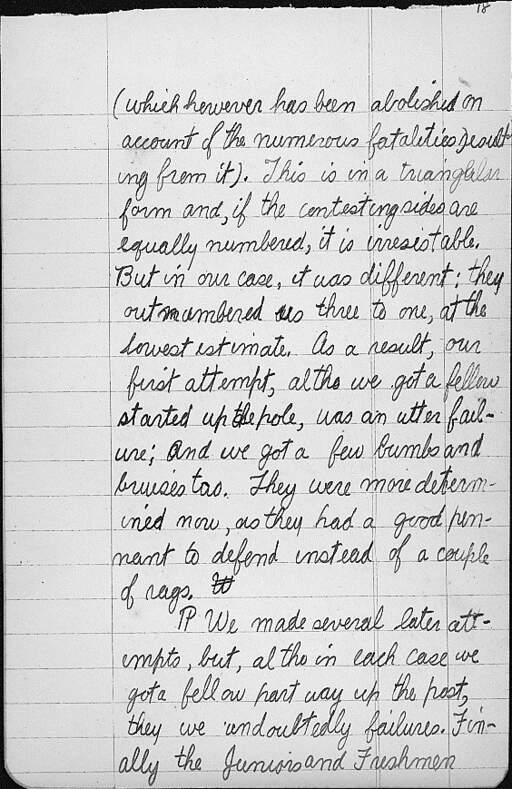 18
(which however has been abolished on
account of the numerous fatalities result-
ing from it). This is in a triangular
form and, if the contesting sides are
equally numbered, it is irresestable.
But in our case, it was different; they
outnumbered us three to one, at the
lowest estimate. As a result, our
first attempt, altho we got a fellow
started up the pole, was an utter fail-
ure; and we got a few bumbs and
bruises too. They were more determ-
ined now, as they had a good pen-
nant to defend instead of a couple
of rags.
¶ We made several later att-
empts, but, altho in each case we
got a fellow part way up the post,
they we undoubtedly failures. Fin-
ally the Juniors and Freshmen